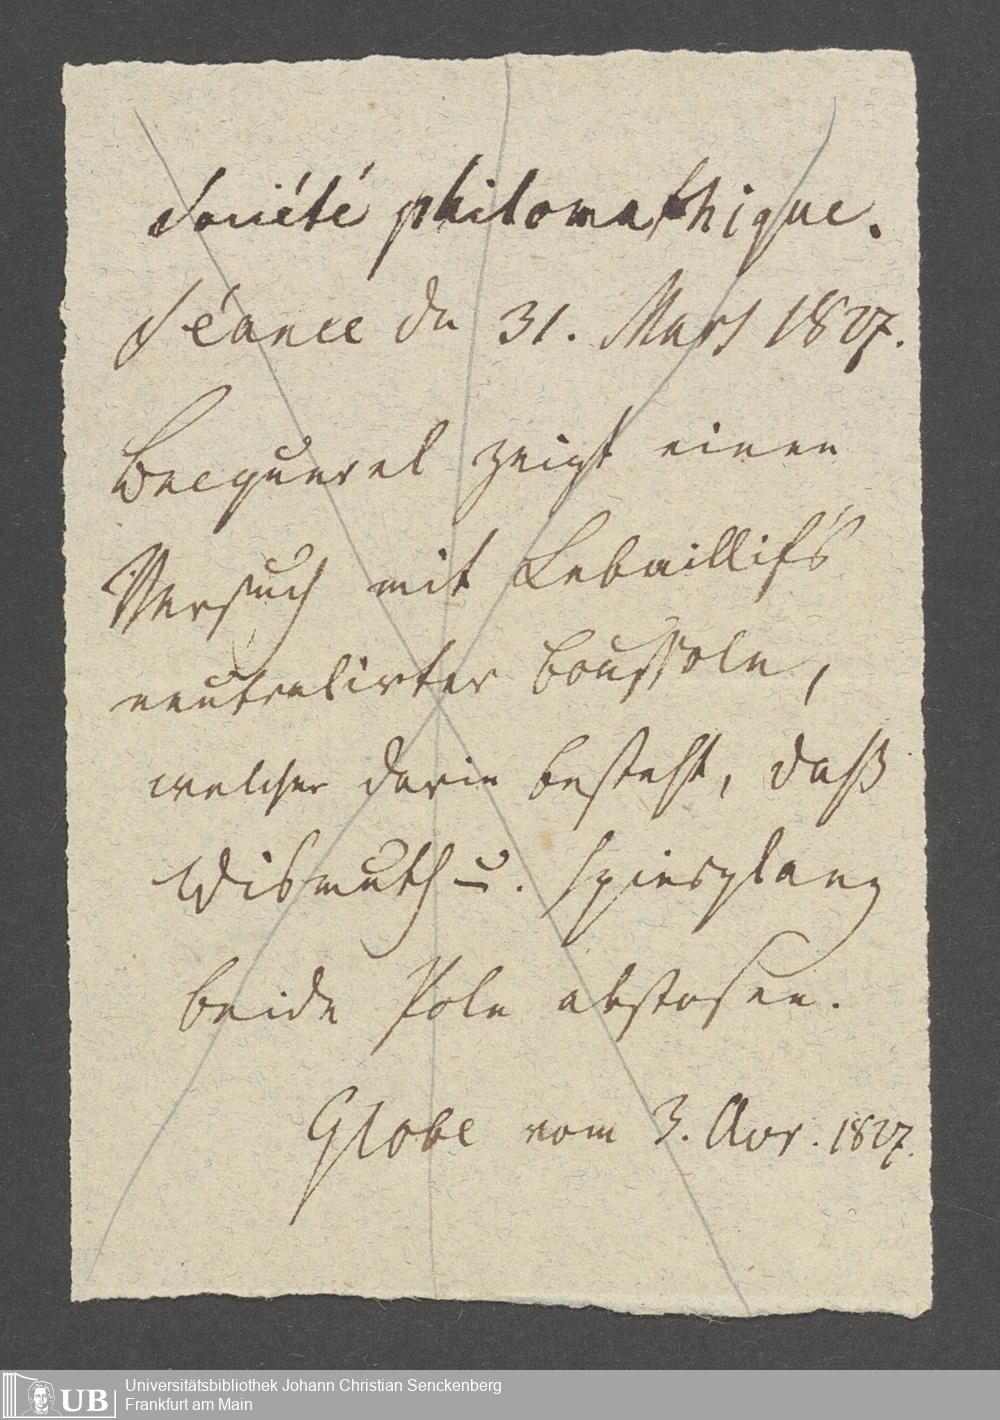 Société philomathique.
Séance du 31. Mars 1827.
Becquerel zeigt einen
Versuch mit Lebaillif's
neutralisirter Boussole,
welcher darin besteht, daß
Wismuth u. Spiesglanz
beide Pole abstosen.
Globe vom 3. Avr. 1827.
UB
Universitätsbibliothek Johann Christian Senckenberg
Frankfurt am Main